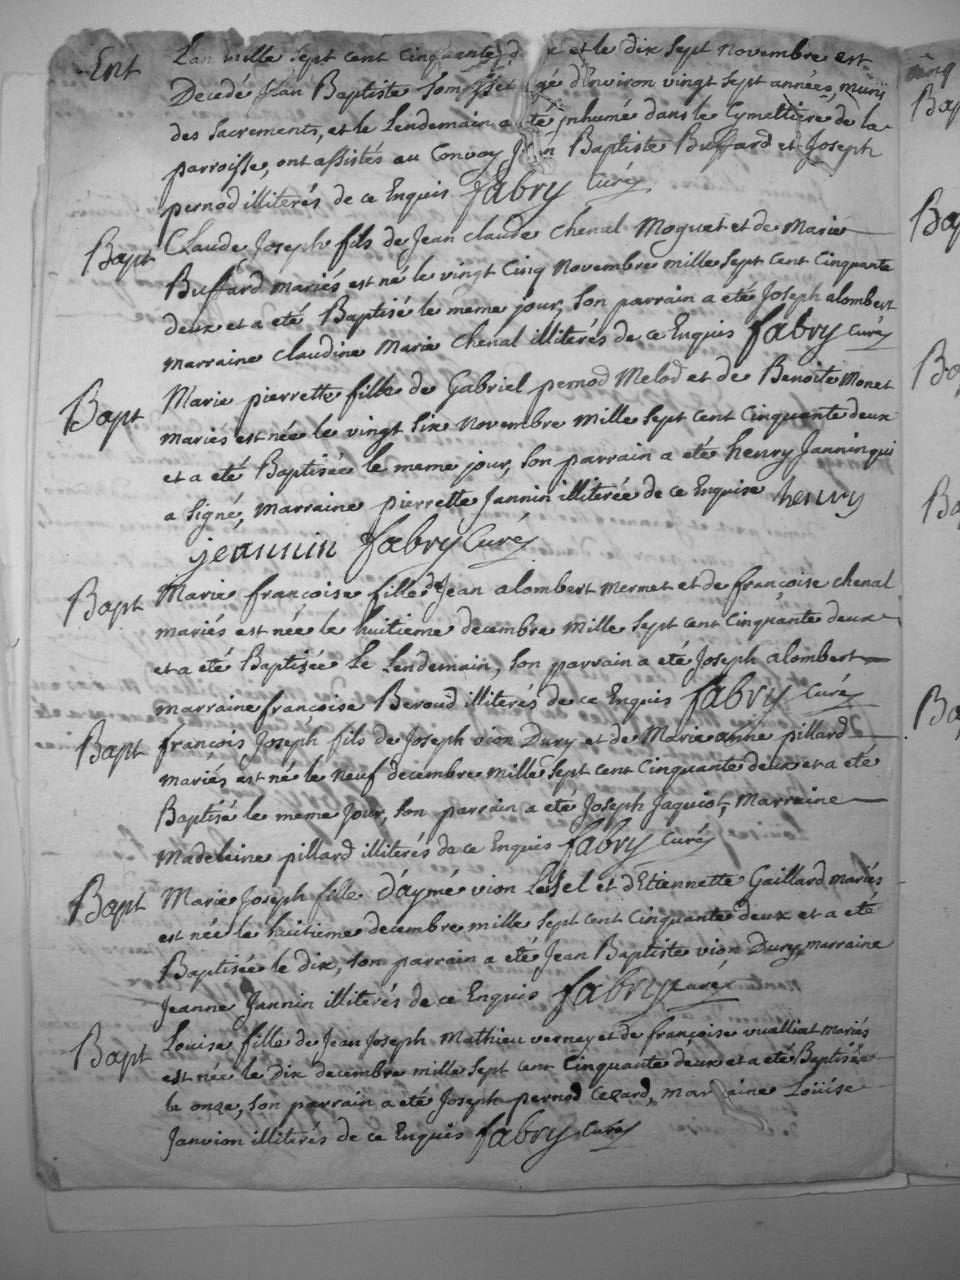 Ent L'an mille sept cent cinquante d x et le dix sept novembre est
Decedé jean Baptiste gé d'Environ vingt sept années, muni
des Sacrements, et le Lendemain a eté jnhumé dans le Cymettiere de la
parroisse, ont assistés au Convoy J n Baptiste Buffard et Joseph
pernod illiterés de ce Enquis fabry Curé
Bapt Claude Joseph fils de Jean claude chenal Moguet et de Marie
Buffard mariés est né le vingt Cinq novembre mille sept cent Cinquante
deux et a eté Baptisé le meme jour, son parrain a eté Joseph alombert
marraine claudine Marie chenal illiterés de ce Enquis fabry Curé
Bapt Marie pierrette fille de Gabriel pernod Melod et de Benoite Monet
mariés est née le vingt six novembre mille sept cent Cinquante deux
et a eté Baptisée le meme jour, son parrain a eté henry Jannin qui
a signé, marraine pierrette Jannin illiterée de ce Enquise henry
jeannin fabry Curé
Bapt Marie françoise fille de Jean alombert mermet et de françoise chenal
mariés est née le huitieme decembre mille sept cent Cinquante deux
et a eté Baptisée Le Lendemain, son parrain a eté Joseph alombert
marraine françoise Beroud illiterés de ce Enquis fabry Curé
Bapt françois Joseph fils de Joseph vion Dury et de Marie anne pillard
mariés est né le neuf decembre mille sept cent Cinquante deux et a eté
Baptisé le meme Jour, son parrain a eté Joseph Jaquiot, Marraine
Madeleine pillard illiterés de ce Enquis fabry Curé
Bapt Marie Joseph fille d'aymé vion et d'Etiennette Gaillard mariés
est née le huitieme decembre mille sept cent Cinquante deux et a eté
Baptisée le dix, son parrain a eté Jean Baptiste vion Dury, marraine
Jeanne Jannin illiterés de ce Enquis fabry Curé
Bapt Louise fille de Jean Joseph Mathieu verney et de françoise vualliat mariés
est née le dix decembre mille sept cent Cinquante deux et a eté Baptisée
le onze, son parrain a eté Joseph pernod Cezard, mar aine Loüise
Janvion illiterés de ce Enquis fabry Curé